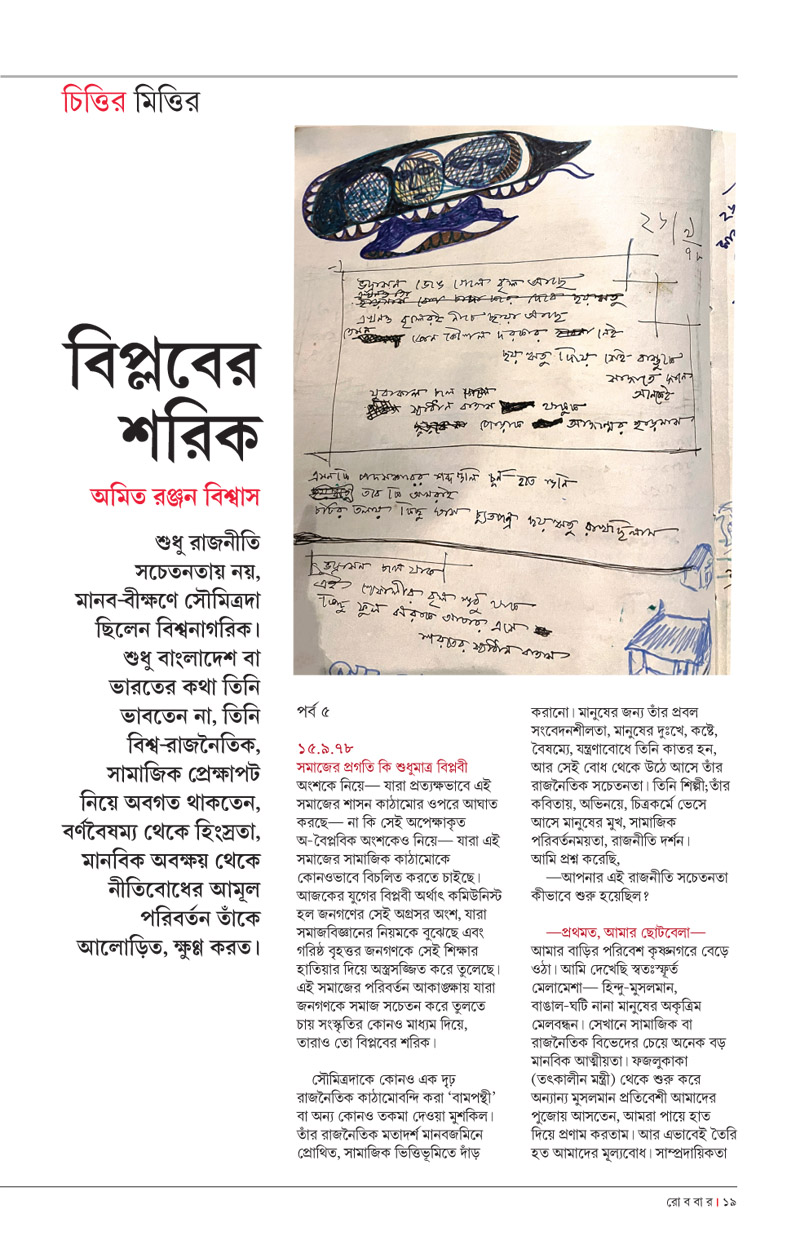 চিত্তির মিত্তির
বিপ্লবের
শরিক
অমিত রঞ্জন বিশ্বাস
শুধু রাজনীতি
সচেতনতায় নয়,
মানব-বীক্ষণে সৌমিত্রদা
ছিলেন বিশ্বনাগরিক।
শুধু বাংলাদেশ বা
ভারতের কথা তিনি
ভাবতেন না, তিনি
বিশ্ব-রাজনৈতিক,
সামাজিক প্রেক্ষাপট
নিয়ে অবগত থাকতেন,
বর্ণবৈষম্য থেকে হিংস্রতা,
মানবিক অবক্ষয় থেকে
নীতিবোধের আমূল
পরিবর্তন তাঁকে
আলোড়িত, ক্ষুণ্ণ করত।
পর্ব ৫
১৫.৯.৭৮
সমাজের প্রগতি কি শুধুমাত্র বিপ্লবী
অংশকে নিয়ে— যারা প্রত্যক্ষভাবে এই
সমাজের শাসন কাঠামোর ওপরে আঘাত
করছে— না কি সেই অপেক্ষাকৃত
অ-বৈপ্লবিক অংশকেও নিয়ে— যারা এই
সমাজের সামাজিক কাঠামোকে
কোনওভাবে বিচলিত করতে চাইছে।
আজকের যুগের বিপ্লবী অর্থাৎ কমিউনিস্ট
হল জনগণের সেই অগ্রসর অংশ, যারা
সমাজবিজ্ঞানের নিয়মকে বুঝেছে এবং
গরিষ্ঠ বৃহত্তর জনগণকে সেই শিক্ষার
হাতিয়ার দিয়ে অস্ত্রসজ্জিত করে তুলেছে।
এই সমাজের পরিবর্তন আকাঙ্ক্ষায় যারা
জনগণকে সমাজ সচেতন করে তুলতে
চায় সংস্কৃতির কোনও মাধ্যম দিয়ে,
তারাও তো বিপ্লবের শরিক।
সৌমিত্রদাকে কোনও এক দৃঢ়
রাজনৈতিক কাঠামোবন্দি করা ‘বামপন্থী’
বা অন্য কোনও তকমা দেওয়া মুশকিল।
তাঁর রাজনৈতিক মতাদর্শ মানবজমিনে
প্রোথিত, সামাজিক ভিত্তিভূমিতে দাঁড়
করানো। মানুষের জন্য তাঁর প্রবল
সংবেদনশীলতা, মানুষের দুঃখে, কষ্টে,
বৈষম্যে, যন্ত্রণাবোধে তিনি কাতর হন,
আর সেই বোধ থেকে উঠে আসে তাঁর
রাজনৈতিক সচেতনতা। তিনি শিল্পী;তাঁর
কবিতায়, অভিনয়ে, চিত্রকর্মে ভেসে
আসে মানুষের মুখ, সামাজিক
পরিবর্তনময়তা, রাজনীতি দর্শন।
আমি প্রশ্ন করেছি,
—আপনার এই রাজনীতি সচেতনতা
কীভাবে শুরু হয়েছিল?
—প্রথমত, আমার ছোটবেলা—
আমার বাড়ির পরিবেশ কৃষ্ণনগরে বেড়ে
ওঠা। আমি দেখেছি স্বতঃস্ফূর্ত
মেলামেশা— হিন্দু-মুসলমান,
বাঙাল-ঘটি নানা মানুষের অকৃত্রিম
মেলবন্ধন। সেখানে সামাজিক বা
রাজনৈতিক বিভেদের চেয়ে অনেক বড়
মানবিক আত্মীয়তা। ফজলুকাকা
(তৎকালীন মন্ত্রী) থেকে শুরু করে
অন্যান্য মুসলমান প্রতিবেশী আমাদের
পুজোয় আসতেন, আমরা পায়ে হাত
দিয়ে প্রণাম করতাম। আর এভাবেই তৈরি
হত আমাদের মূল্যবোধ। সাম্প্রদায়িকতা
রো ব বা র। ১৯